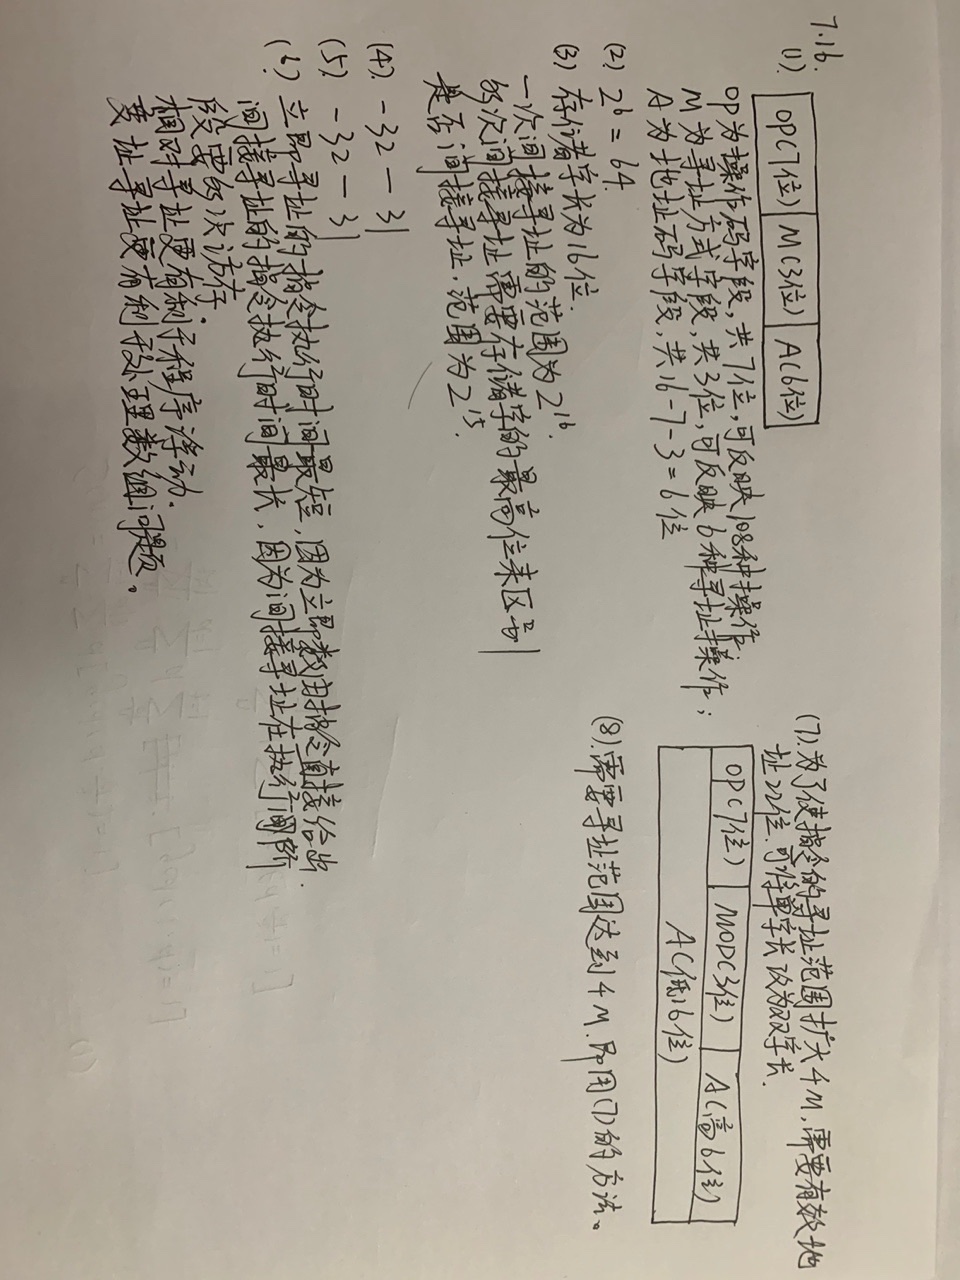 7.16.
(1).
OP(7位) M(3位) A(6位)
OP为操作码字段,共7位,可反映108种操作;
M为寻址方式字段,共3位,可反映6种寻址操作;
A为地址码字段,共16-7-3=6位
(2) 2⁶=64
(3) 存储字长为16位.
一次间接寻址的范围为2¹⁶.
多次间接寻址需要存储字的最高位来区别
是否间接寻址,范围为2¹⁵.
(4). -32 — 31
(5) -32 — 31
(6) 立即寻址的指令执行时间最短,因为立即数由指令直接给出.
间接寻址的指令执行时间最长,因为间接寻址在执行阶
段要多次访存.
相对寻址更有利于程序浮动.
变址寻址更有利于处理数组问题。
(7).为了使指令的寻址范围扩大4M,需要有效地
址22位.可将单字长改为双字长.
OP(7位) MOD(3位) A(高6位)
A(低16位)
(8).需要寻址范围达到4M.即用(7)的方法。